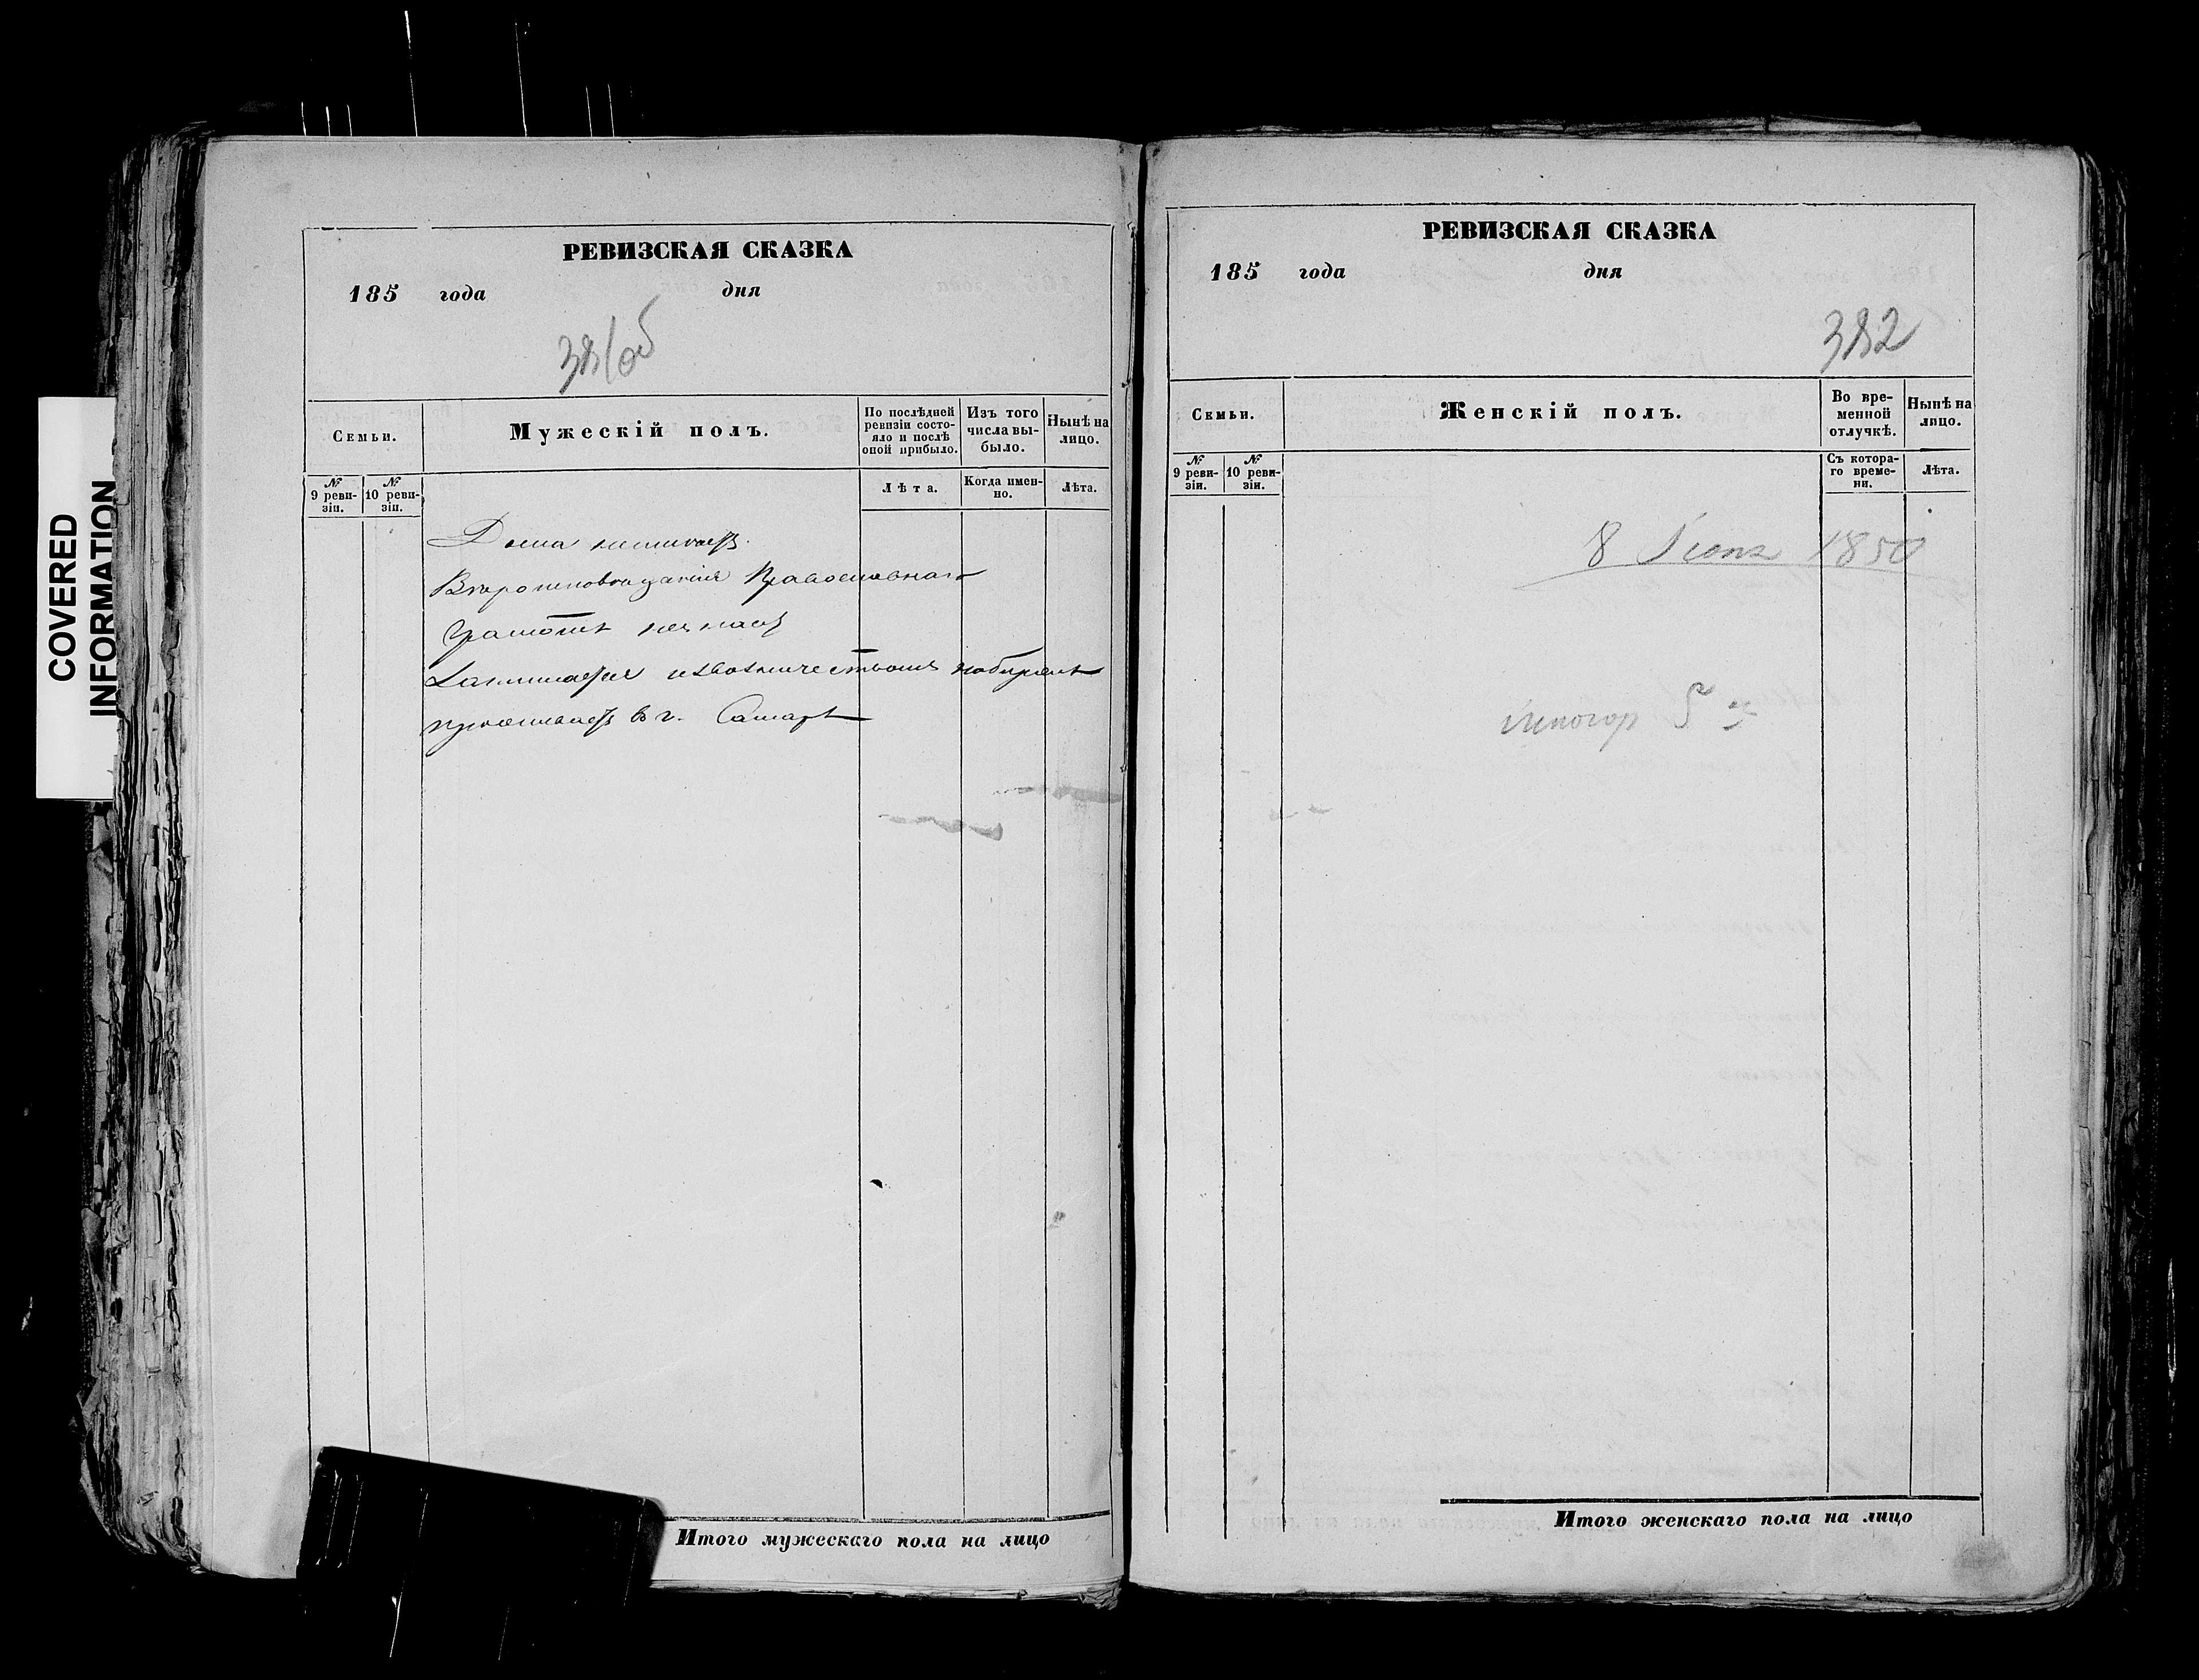 COVERED
INFORMATION
РЕВИЗСКАЯ СКАЗКА
185 года дня
381об
Семьи.
Мужескій полъ.
По послѣдней ревизіи состо-
яло и послѣ
оной прибыло.
Изъ того
числа вы-
было.
Нынѣ на
лицо.
№
9 реви-
зіи.
№
10 реви-
зіи.
Лѣта.
Когда имен-
но.
Лѣта.
Дома неимѣетъ.
Вѣроисповѣданія Православнаго
Грамотѣ незнаетъ
Занимается извозничествомъ
проживаетъ въ г. Самарѣ
Итого мужескаго пола на лицо
РЕВИЗСКАЯ СКАЗКА
185 года дня
382
Семьи.
Женскій полъ.
Во вре-
менной
отлучкѣ.
Нынѣ на
лицо.
№
9 реви-
зіи.
№
10 реви-
зіи.
Съ котора-
го време-
ни.
Лѣта.
8 1850
иногор
Итого женскаго пола на лицо